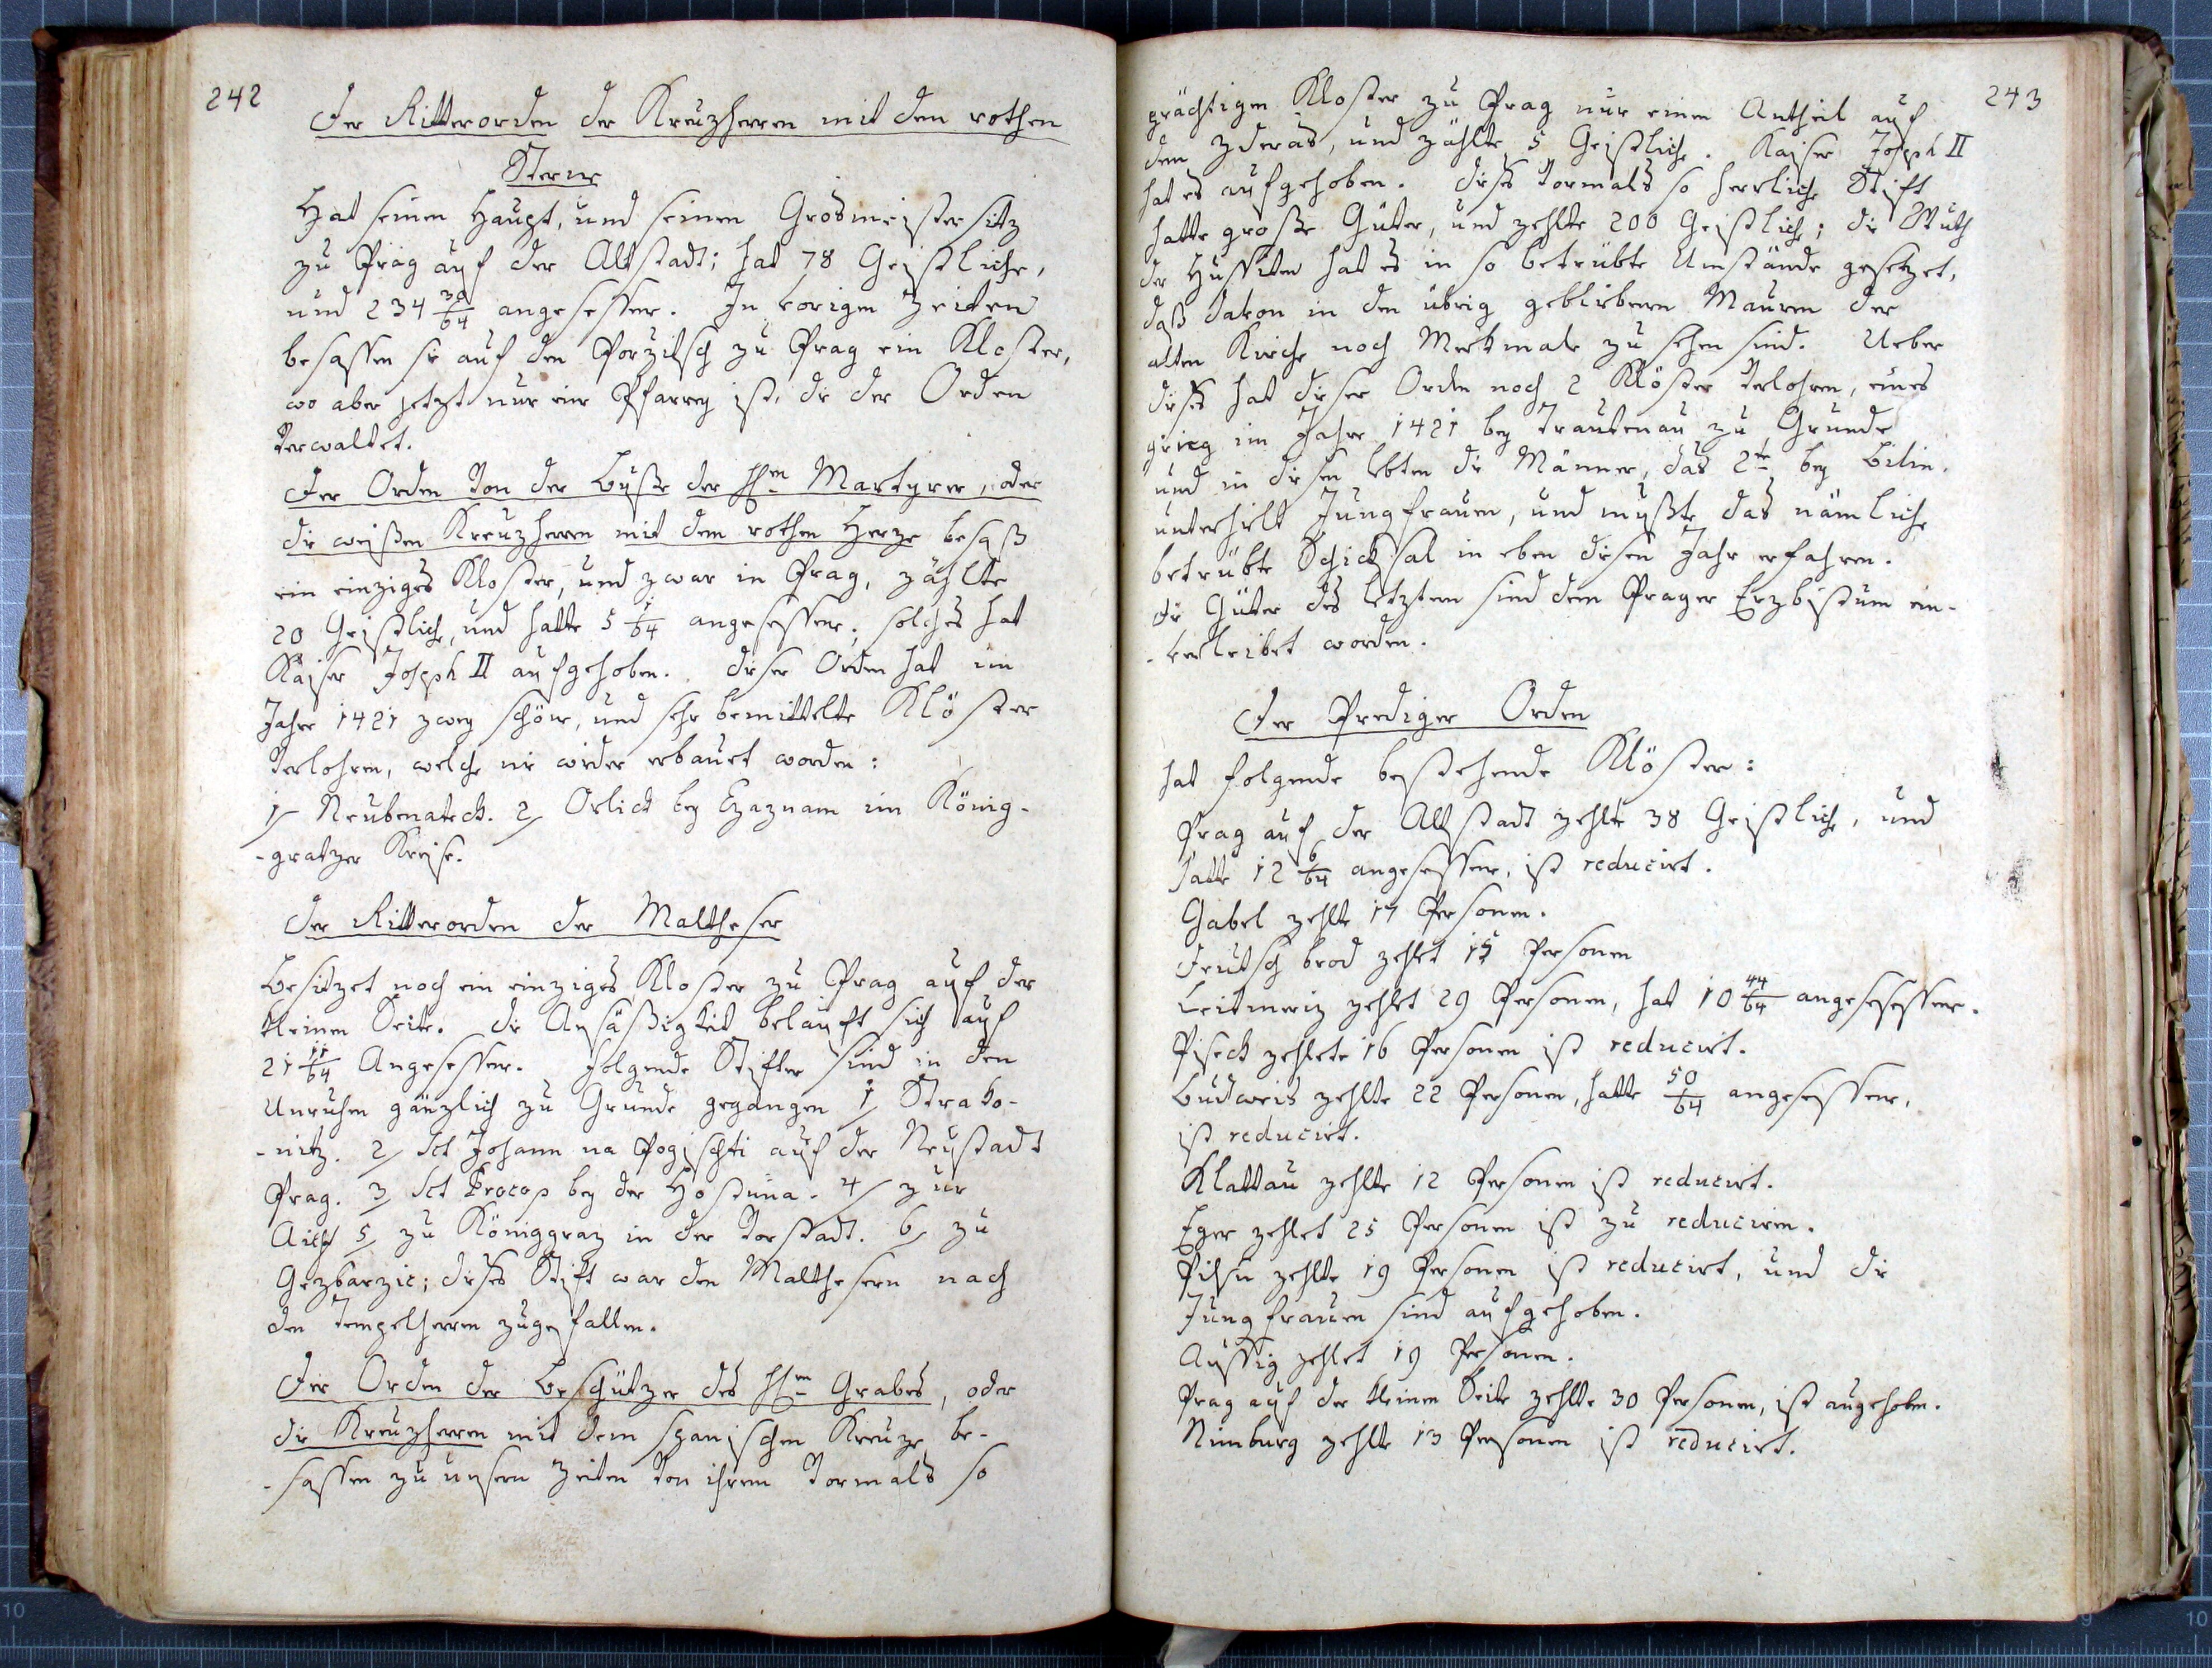 242
Der Ritterorden der Kreuzherren mit dem rothen
Sterne
Hat seinen Haupt, und seinen Grosmeistersitz
zu Prag auf der Altstadt; hat 78 Geistliche,
und 234 30/64 angesessene. In vorigen Zeiten
besassen sie auf den Porzitsch zu Prag ein Kloster,
wo aber jetzt nur eine Pfarrey ist, die der Orden
verwaltet.
Der Orden von der Buße der hhen Martyrer, oder
die weißen Kreuzherren mit dem rothen Herze besaß
ein einziges Kloster, und zwar in Prag, zählte
20 Geistliche, und hatte 5 1/64 angesessene; solches hat
Kaiser Joseph II aufgehoben. Dieser Orden hat im
Jahre 1421 zwey schöne, und sehr bemittelte Klöster
verlohren, welche nie wieder erbauet worden:
1/ Neubenateck. 2/ Orlick bey im König-
-gratzer Kreise.
Der Ritterorden der Maltheser
Besitzet noch ein einziges Kloster zu Prag auf der
kleinen Seite. Die Ansäßigkeit belauft sich auf
21 11/64 Angesessene. Folgende Stifter sind in den
Unruhen gänzlich zu Grunde gegangen 1/ Strako-
-nitz. 2/ Sct Johann na Pogischti auf der Neustadt
Prag. 3/ Sct Procop bey der 4/ zur
5/ zu Königgraz in der Vorstadt. 6/ zu
dieses Stift war den Malthesern nach
den Tempelherren zugefallen.
Der Orden der Beschützer des hhen Grabes, oder
die Kreuzherren mit dem spanischen Kreuze be-
-sassen zu unsern Zeiten von ihrem vormals so
243
prächtigen Kloster zu Prag nur einen Antheil auf
dem Zderas, und zählte 5 Geistliche. Kaiser Joseph II
hat es aufgehoben. Dieses vormals so herrliche Stift
hatte große Güter, und zehlte 200 Geistliche; die Wuth
der Hussiten hat es in so betrübte Umstände gesetzet,
daß davon in den übrig gebliebenen Mauren der
alten Kirche noch Merkmale zu sehen sind. Ueber
dieses hat dieser Orden noch 2 Klöster verlohren, eines
gieng im Jahre 1421 bey Trautenau zu Grunde
und in diesen lebten die Männer, das 2te bey Bilin.
unterhielt Jungfrauen, und mußte das nämliche
betrübte Schicksal in eben diesen Jahr erfahren.
die Güter des letztern sind dem Prager Erzbistum ein-
-verleibet worden.
Der Prediger Orden
hat folgende bestehende Klöster:
Prag auf der Altstadt zehlte 38 Geistliche, und
hatte 12 6/64 angesessene, ist reducirt.
Gabel zehlte 17 Personen.
Deutsch brod zehlet 15 Personen
Leitmeriz zehlet 29 Personen, hat 10 44/64 angesesessene.
Piseck zehlete 16 Personen ist reducirt.
Budweis zehlte 22 Personen, hatte 50/64 angesessene,
ist reducirt.
Klattau zehlte 12 Personen ist reducirt.
Eger zehlet 25 Personen ist zu reduciren.
Pilsen zehlte 19 Personen ist reducirt, und die
Jungfrauen sind aufgehoben.
Aussig zehlet 19 Personen.
Prag auf der kleinen Seite zehlte 30 Personen, ist augehoben.
Nimburg zehlte 13 Personen ist reducirt.